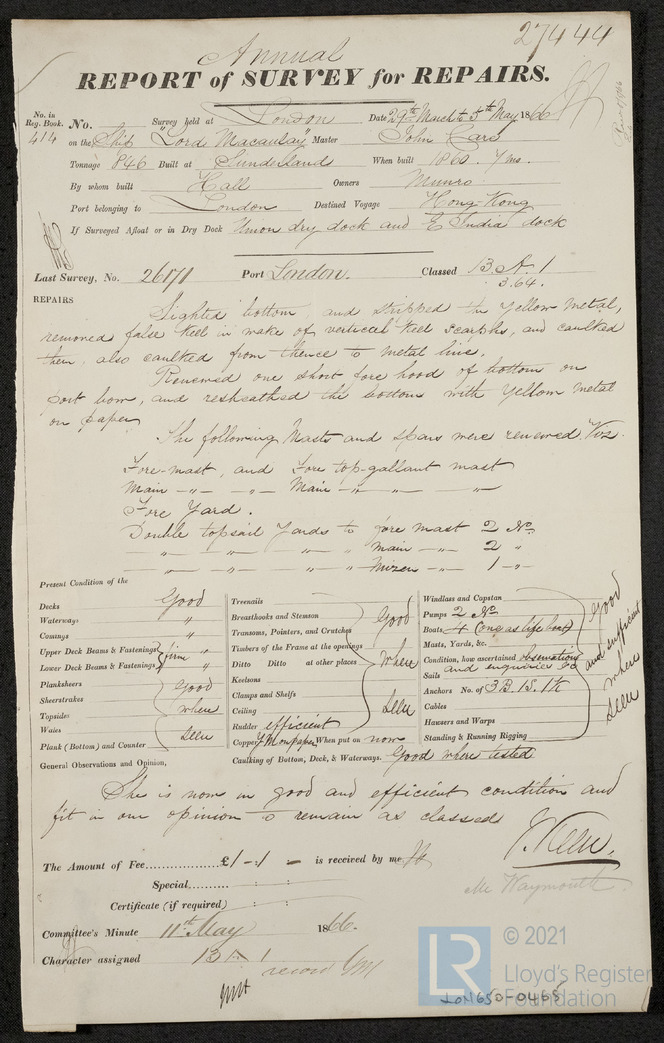 27444
Annual
REPORT of SURVEY for REPAIRS.
No. in Reg. Book. No. Survey held at London Date 27th March to 5th May 1866
414 on the Ship "Lord Macaulay" Master John Care
Tonnage 846 Built at Sunderland When built 1860. 7 mo.
By whom built Hall Owners Munro
Port belonging to London Destined Voyage Hong Kong
If Surveyed Afloat or in Dry Dock Union dry dock and E India dock
Last Survey, No. 26171 Port London. Classed 13. A. 1
3.64.
REPAIRS Sighted bottom, and stripped the Yellow Metal,
removed false keel in wake of vertical keel scarphs, and caulked
them, also caulked from thence to metal line.
Renewed one short fore hood of bottom on
port bow, and resheathed the bottom with Yellow Metal
on paper
The following Masts and spars were renewed. Viz.
Fore-mast, and Fore top-gallant mast
Main -"- -"- Main -"- -"-
Fore Yard.
Double topsail Yards to fore mast 2 No.
-"- -"- -"- " main -"- 2 "
-"- -"- -"- " Mizen -"- 1 -"-
Present Condition of the
Decks Good
Waterways "
Comings "
Upper Deck Beams & Fastenings firm "
Lower Deck Beams & Fastenings "
Planksheers Good
Sheerstrakes where
Topsides
Wales seen
Plank (Bottom) and Counter
Treenails
Breasthooks and Stemson Good
Transoms, Pointers, and Crutches
Timbers of the Frame at the openings
Ditto Ditto at other places where
Keelsons
Clamps and Shelfs
Ceiling seen
Rudder efficient
Copper YM on paper When put on now
Windlass and Capstan
Pumps 2 No.
Boats 4 (one as life boat)
Masts, Yards, &c.
Condition, how ascertained observations
Sails and enquiries
Anchors No. of 3B. 1S. 1K
Cables
Hawsers and Warps
Standing & Running Rigging
Good and sufficient where seen
Caulking of Bottom, Deck, & Waterways. Good where tested
General Observations and Opinion,
She is now in good and efficient condition and
fit in our opinion to remain as classed
The Amount of Fee £1 -:1 - is received by me
Special
Certificate (if required)
Mr Waymouth
Committee's Minute 11th May 1866.
Character assigned 13 A 1
record YM
LR © 2021
Lloyd's Register
Foundation
LON650-0465